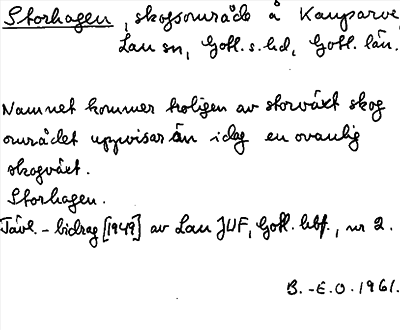 Storhagen, skogsområde å Kauparve
Lau sn, Gotl. s. hd, Gotl. län.
Namnet kommer troligen av storväxt skog
området uppvisar än idag en ovanlig
skogväxt.
Storhagen.
Tävl.-bidrag [1949] av Lau JUF, Gotl. hbf., nr 2.
B.-E.O. 1961.